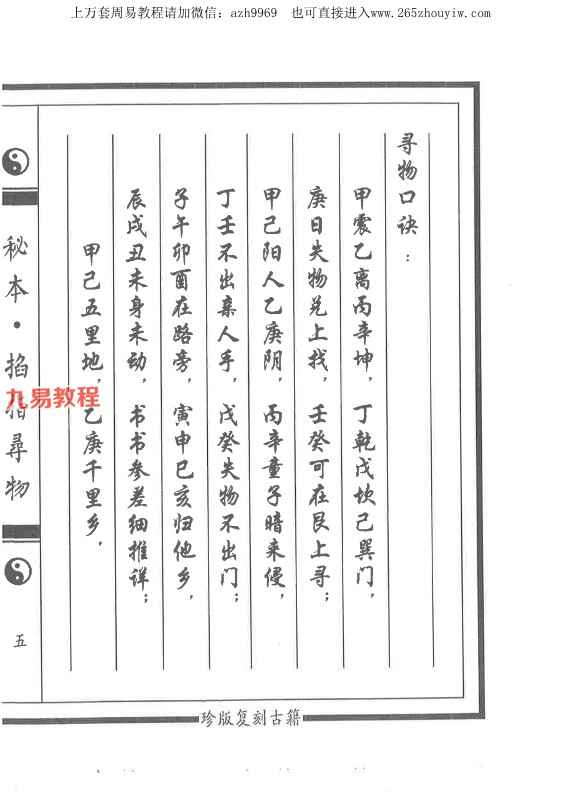 上万套周易教程请加微信：azh9969　也可直接进入www.265zhouyiw.com
寻物口诀：
甲震乙离丙辛坤，丁乾戊坎己巽门，
庚日失物兑上找，壬癸可在艮上寻；
甲己阳人乙庚阴，丙辛童子暗来侵，
丁壬不出亲人手，戊癸失物不出门；
子午卯酉在路旁，寅申巳亥归他乡，
辰戌丑未身未动，书书参差细推详；
甲己五里地，乙庚千里乡，
秘本·掐指尋物
九易教程
五
珍版复刻古籍